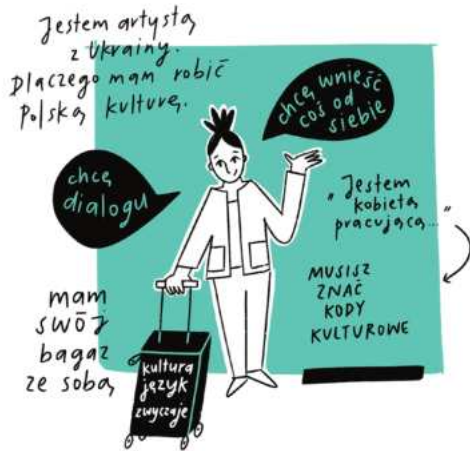 Jestem artystą
z Ukrainy.
Dlaczego mam robić
Polską kulturę.
chcę wnieść
coś od
siebie
chcę
dialogu
„Jestem
kobietą
pracującą..."
MUSISZ
ZNAĆ
KODY
KULTUROWE
mam
swój
bagaż
ze sobą
kultura
język
zwyczaje